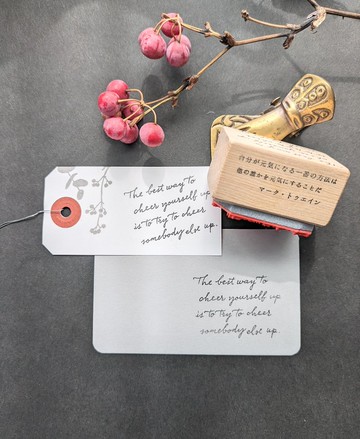 自分が元気になる一番の方法は
他の誰かを元気にすることだ
マーク・トウェイン
The best way to
cheer yourself up
is to try to cheer
somebody else up.
The best way to
cheer yourself up
is to try to cheer
somebody else up.